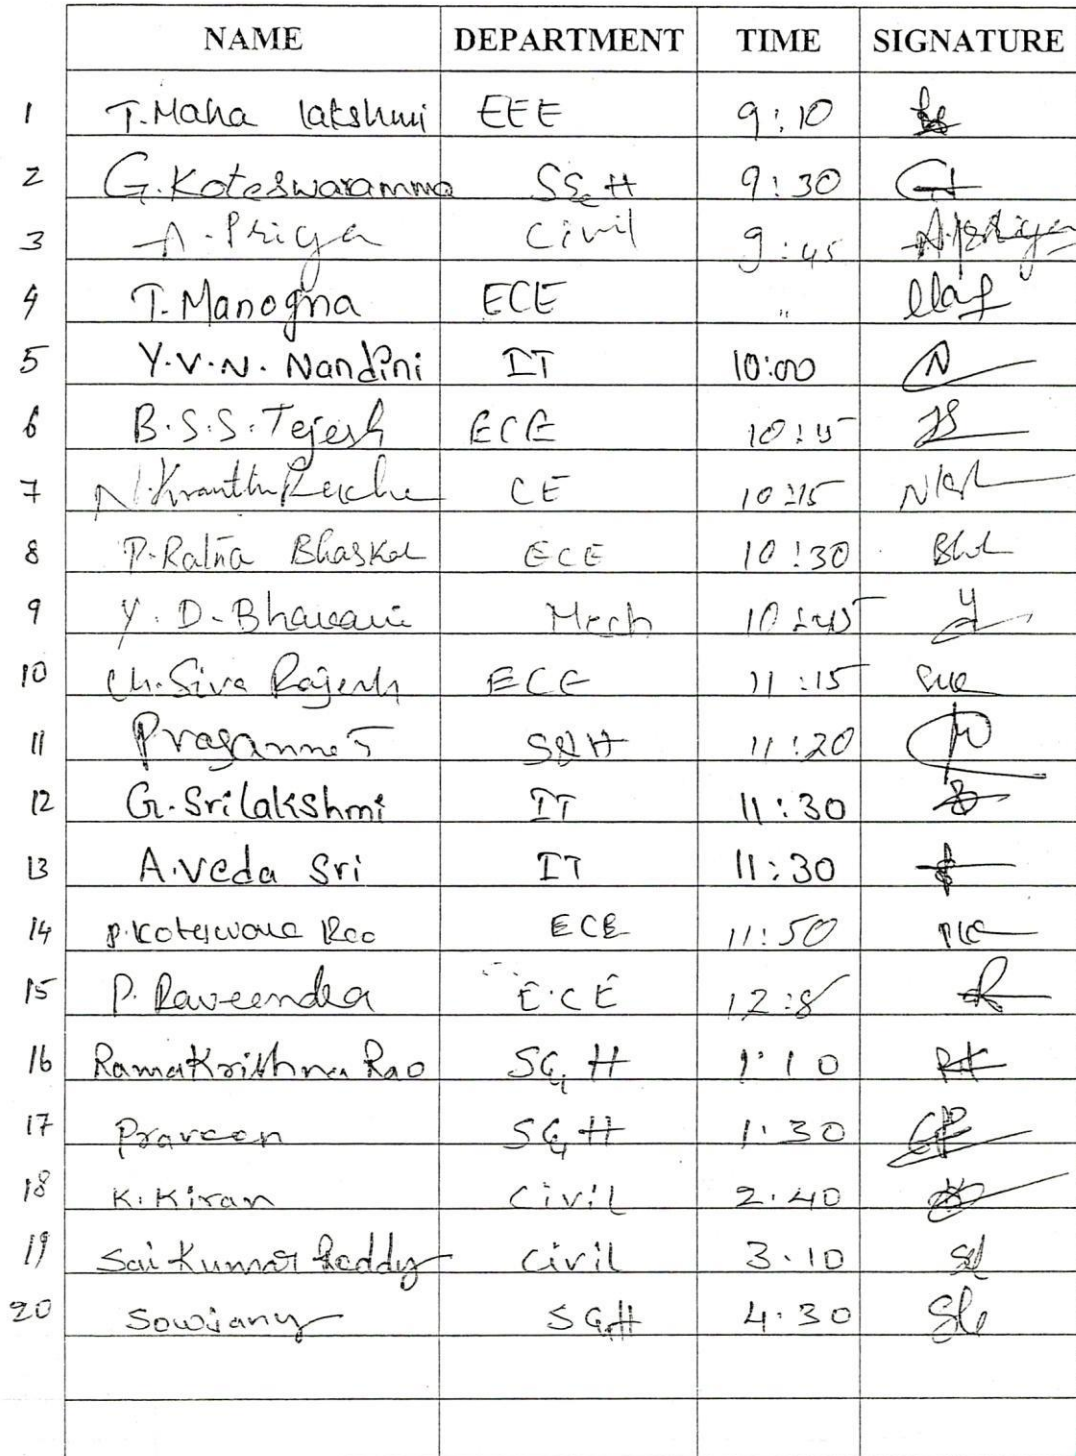 NAME DEPARTMENT TIME SIGNATURE
1 T. Maha lakshmi EEE 9:10
2 G. Koteswaramma S&H 9:30
3 A. Priya Civil 9:45 A. Priya
4 T. Manogna ECE "
5 Y.V.N. Nandini IT 10:00 N
6 B.S.S. Tejesh ECE 10:15
7 N. Kranthi CE 10:15
8 P. Ratna Bhaskar ECE 10:30
9 Y. D. Bhavani Mech 10:45 y
10 Ch. Siva Rajesh ECE 11:15
11 Prasanna S&H 11:20
12 G. Srilakshmi IT 11:30
13 A. Veda Sri IT 11:30
14 P. Koteswara Rao ECE 11:50
15 P. Raveendra E.C.E 12:8
16 Ramakrishna Rao S&H 1:10 RK
17 Praveen S&H 1:30
18 K. Kiran Civil 2.40
19 Sai Kumar Reddy Civil 3.10
20 Sowjany S&H 4.30